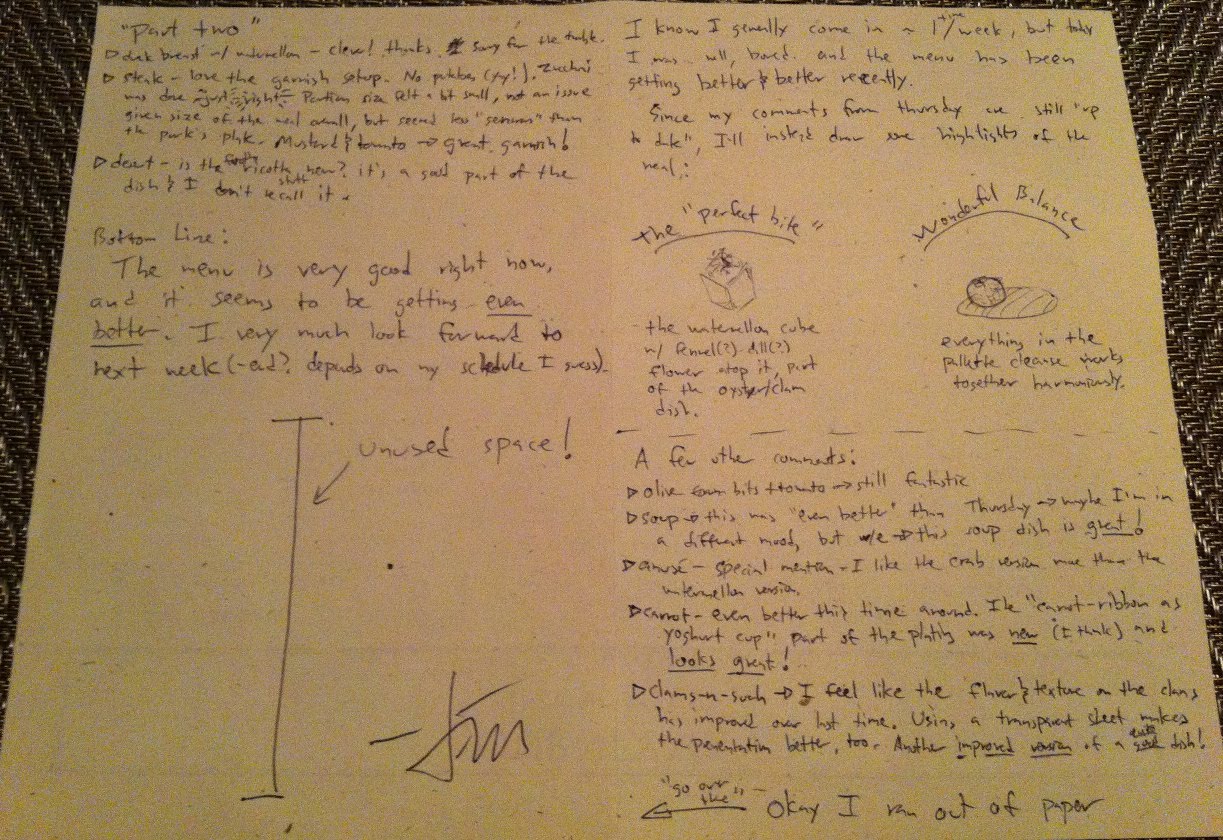 I know I generally come in ~ 1 time/week, but today
I was well, bored. and the menu has been
getting better & better recently.
Since my comments from Thursday are still "up
to date", I'll instead draw some highlights of the
meal,:
the "perfect bite"
the watermellon cube
w/ fennel(?) dill(?)
flower atop it, part
of the oyster/clam
dish.
Wonderful Balance
everything in the
pallette cleanse works
together harmoniously.
A few other comments:
▷ olive bits + tomato → still fantastic
▷ soup → this was "even better" than Thursday → maybe I'm in
a different mood, but w/e → this soup dish is great!
▷ amuse - special mention - I like the crab version more than the
watermellon version.
▷ carrot - even better this time around. The "carrot-ribbon as
yoghurt cup" part of the plating was new (I think) and
looks great!
▷ clams-n-such → I feel like the flavor & texture on the clams
has improved over last time. Using a transparent sheet makes
the presentation better, too. Another improved version of a dish!
"go over there" - Okay I ran out of paper
"Part two"
▷ duck breast w/ watermellon - clever! thanks. sorry for the
▷ steak - love the garnish setup. No (yay!). Zucchini
was done just right. Portion size felt a bit small, not an issue
given size of the meal overall, but seemed less "generous" than
the pork's plate. Mustard & tomato → great garnish!
▷ desert - is the ricotta stuff new? it's a good part of the
dish & I don't recall it.
Bottom Line:
The menu is very good right now,
and it seems to be getting even
better. I very much look forward to
next week (-end? depends on my schedule I guess).
unused space!